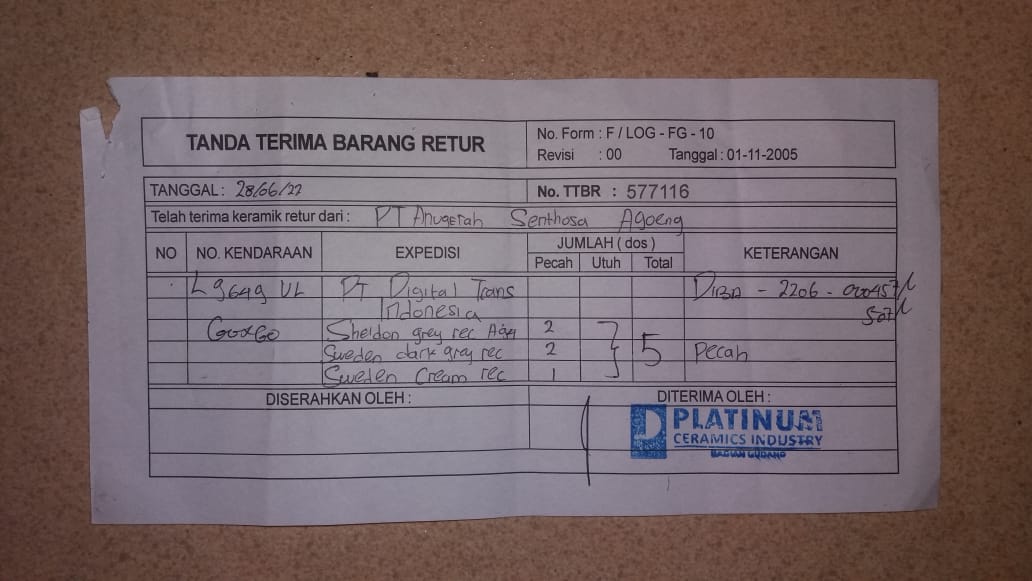 TANDA TERIMA BARANG RETUR
No. Form : F / LOG - FG - 10
Revisi : 00 Tanggal : 01-11-2005
TANGGAL : 28/06/22 No. TTBR : 577116
Telah terima keramik retur dari : PT Anugerah Senthosa Agoeng
NO NO. KENDARAAN EXPEDISI JUMLAH ( dos ) KETERANGAN
Pecah Utuh Total
L 9649 UL PT Digital Trans DIBA - 2206 - 000457
Indonesia
Sheldon grey rec 2
Sweden dark grey rec 2 5 Pecah
Sweden Cream rec 1
DISERAHKAN OLEH : DITERIMA OLEH :
PLATINUM
CERAMICS INDUSTRY
BAGIAN GUDANG